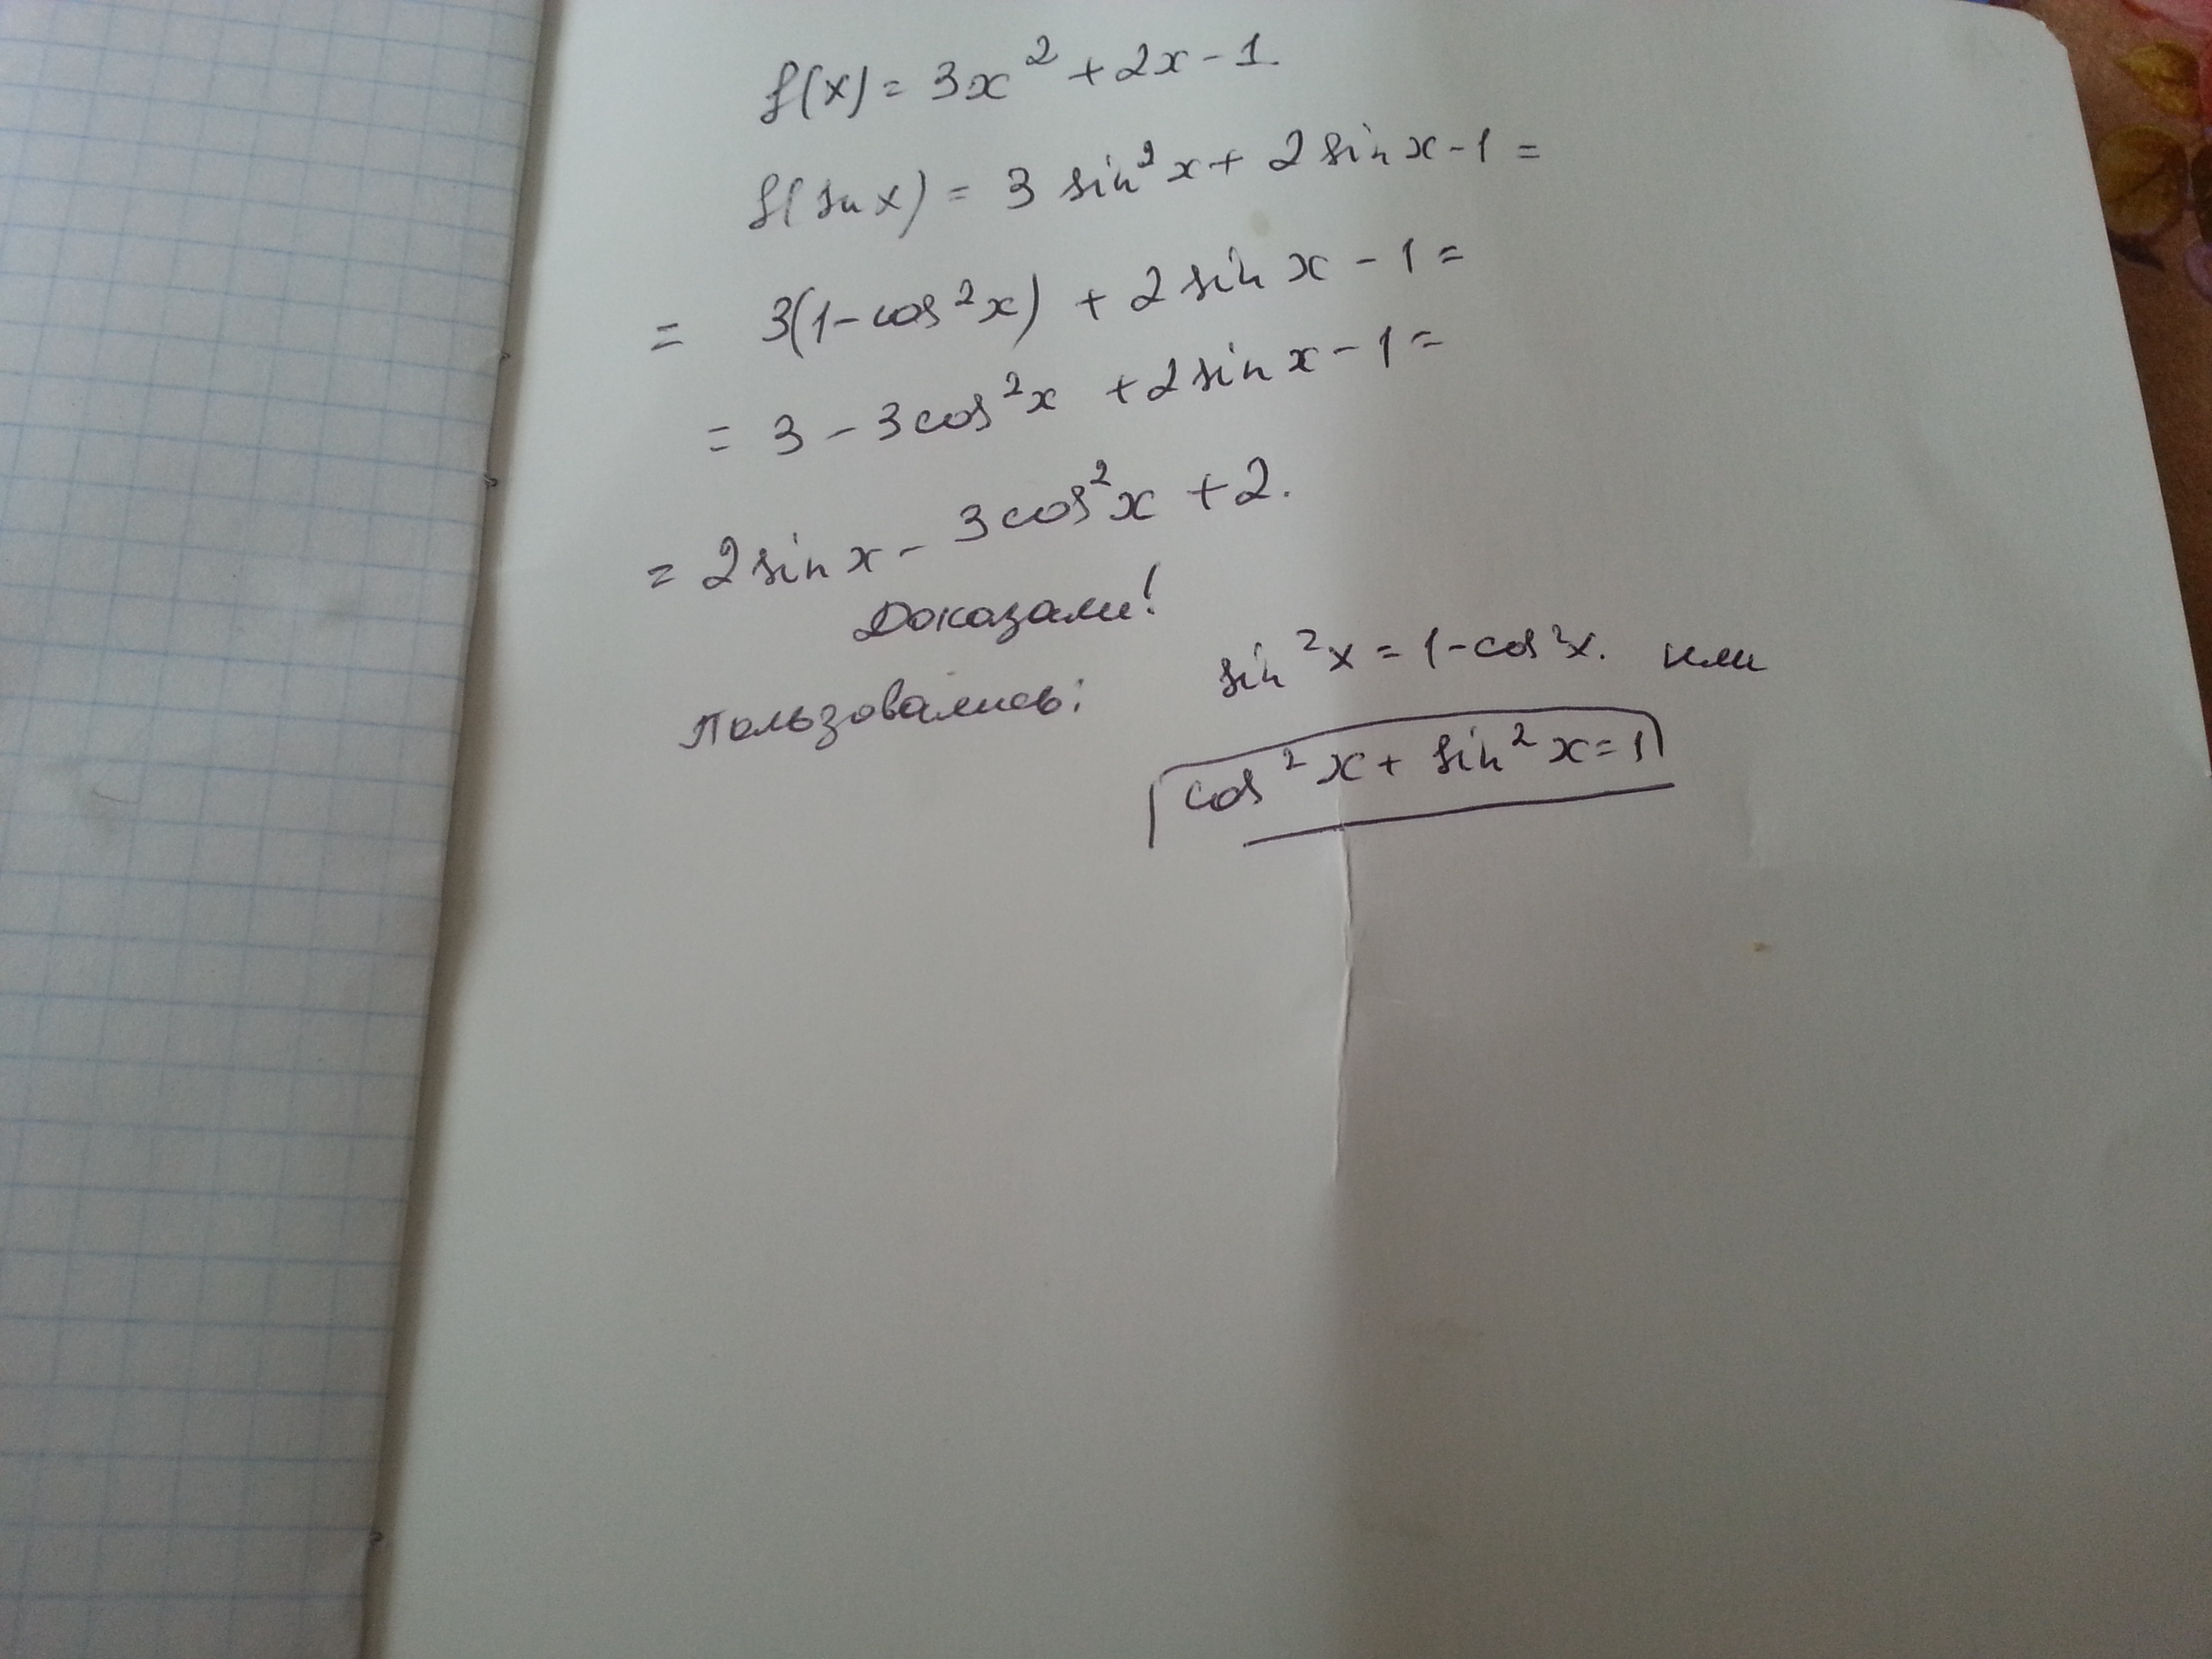 f(x) = 3x² + 2x - 1.
f(sin x) = 3 sin² x + 2 sin x - 1 =
= 3(1 - cos² x) + 2 sin x - 1 =
= 3 - 3 cos² x + 2 sin x - 1 =
= 2 sin x - 3 cos² x + 2.
Доказали!
Пользовались: sin² x = 1 - cos² x. или
cos² x + sin² x = 1